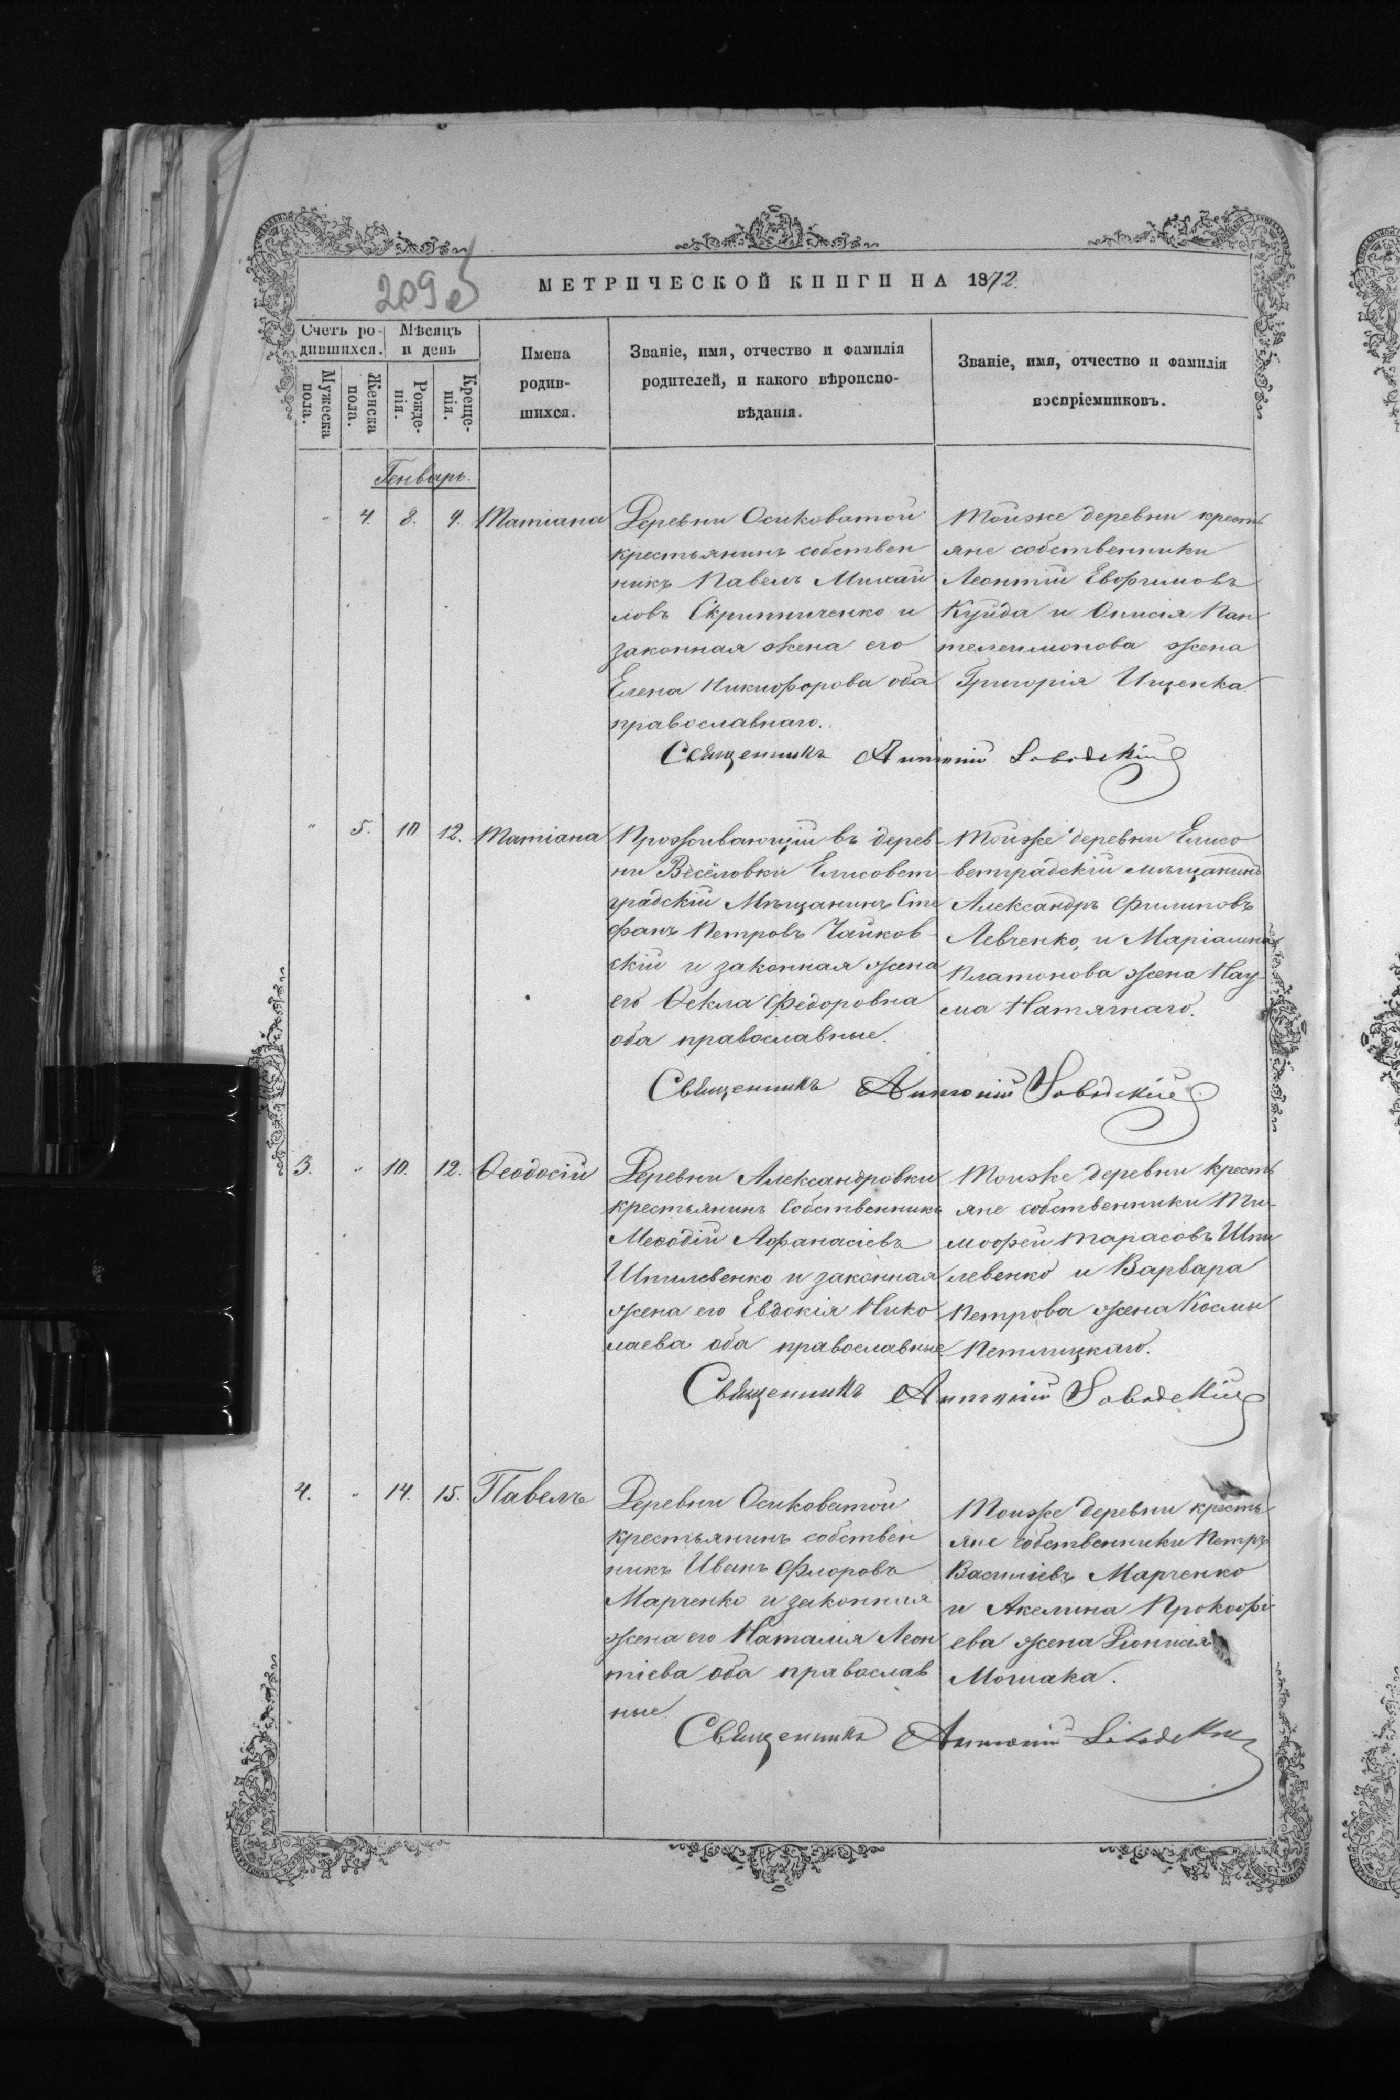 209
МЕТРИЧЕСКОЙ КНИГИ НА 1872
Счетъ ро-
дившихся.
Мѣсяцъ
и день
Мужеска
пола.
Женска
пола.
Рожде-
нія.
Креще-
нія.
Имена
родив-
шихся.
Званіе, имя, отчество и фамилія
родителей, и какого вѣроиспо-
вѣданія.
Званіе, имя, отчество и фамилія
воспріемниковъ.
Генварь.
" 4. 8. 9. Татіана
Деревни Осиковатой
крестьянинъ собствен
никъ Павелъ Михай
ловъ Скрипниченко и
законная жена его
Елена Никифорова оба
православнаго.
Тойже деревни кресть
яне собственники
Леонтій Евфимовъ
Куйда и Онисія Пан
телеимонова жена
Григорія Ищенка.
Священникъ Антоній
" 5. 10. 12. Татіана
Проживающій въ дерев-
ни Весёловки Елисовет
градскій Мѣщанинъ Сте
фанъ Петровъ Чайков-
скій и законная жена
его Ѳекла Федоровна
оба православные.
Тойже деревни Елисо
ветградскій мѣщанинъ
Александръ Филиповъ
Левченко, и Маріамна
Платонова жена Нау-
ма Натягнаго.
Священникъ Антоній
3. " 10. 12. Ѳеодосій
Деревни Александровки
крестьянинъ собственникъ
Меѳодій Афанасіевъ
Шпилевенко и законная
жена его Евдокія Нико
лаева оба православные
Тойже деревни кресть
яне собственники Ти-
моѳей Тарасовъ Шпи
левенко и Варвара
Петрова жена Космы
Петлицкаго.
Священникъ Антоній
4. " 14. 15. Павелъ
Деревни Осиковатой
крестьянинъ собствен
никъ Иванъ Флоровъ
Марченко и законная
жена его Наталія Леон
тіева оба православ
ные
Тойже деревни кресть
яне собственники Петръ
Василіевъ Марченко
и Акелина Прокофі
ева жена Діонисія
Священникъ Антоній